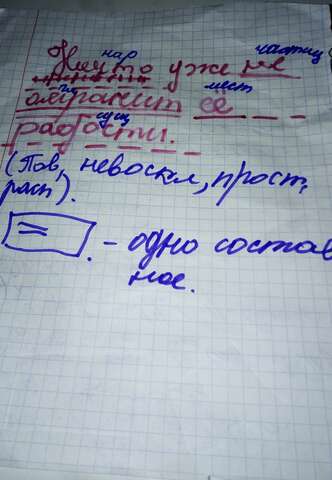 нар частиц
Ничто уже не
гл мест
омрачит её
сущ
радости.
(Пов, невоскл, прост,
расп).
. - одно состав
ное.